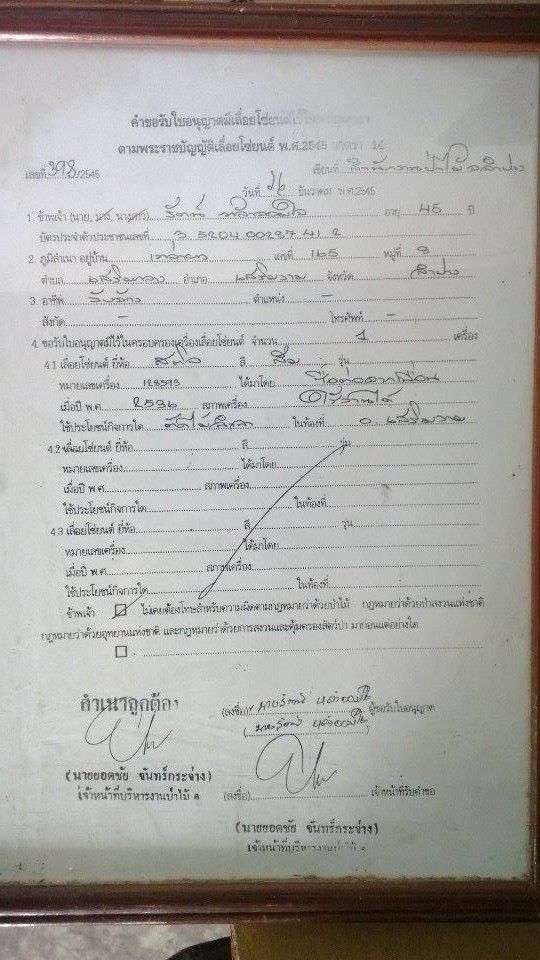 คำขอรับใบอนุญาตมีเลื่อยโซ่ยนต์
ตามพระราชบัญญัติเลื่อยโซ่ยนต์ พ.ศ.2545 มาตรา 14
เลขที่ 398/2545 เขียนที่ สำนักงานป่าไม้ จ.ลำปาง
วันที่ 26 ธันวาคม พ.ศ.2545
1. ข้าพเจ้า (นาย, นาง, นางสาว) อายุ 45 ปี
บัตรประจำตัวประชาชนเลขที่ 3 5204 00287 41 2
2. ภูมิลำเนา อยู่บ้าน เลขที่ 145 หมู่ที่ 8
ตำบล เสริมกลาง อำเภอ เสริมงาม จังหวัด ลำปาง
3. อาชีพ รับจ้าง ตำแหน่ง -
สังกัด - โทรศัพท์ -
4. ขอรับใบอนุญาตมีไว้ในครอบครองเครื่องเลื่อยโซ่ยนต์ จำนวน 1 เครื่อง
4.1 เลื่อยโซ่ยนต์ ยี่ห้อ สี ส้ม รุ่น
หมายเลขเครื่อง 128593 ได้มาโดย ซื้อต่อจากเพื่อน
เมื่อปี พ.ศ. 2536 สภาพเครื่อง ใช้งานได้
ใช้ประโยชน์กิจการใด ในท้องที่ อ.เสริมงาม
4.2 เลื่อยโซ่ยนต์ ยี่ห้อ สี รุ่น
หมายเลขเครื่อง ได้มาโดย
เมื่อปี พ.ศ. สภาพเครื่อง
ใช้ประโยชน์กิจการใด ในท้องที่
4.3 เลื่อยโซ่ยนต์ ยี่ห้อ สี รุ่น
หมายเลขเครื่อง ได้มาโดย
เมื่อปี พ.ศ. สภาพเครื่อง
ใช้ประโยชน์กิจการใด ในท้องที่
ข้าพเจ้า ไม่เคยต้องโทษสำหรับความผิดตามกฎหมายว่าด้วยป่าไม้ กฎหมายว่าด้วยป่าสงวนแห่งชาติ
กฎหมายว่าด้วยอุทยานแห่งชาติ และกฎหมายว่าด้วยการสงวนและคุ้มครองสัตว์ป่า มาก่อนแต่อย่างใด
สำเนาถูกต้อง
(ลงชื่อ) ผู้ขอรับใบอนุญาต
(นายยอดชัย จันทร์กระจ่าง)
เจ้าหน้าที่บริหารงานป่าไม้ ๑
(ลงชื่อ) เจ้าหน้าที่รับคำขอ
(นายยอดชัย จันทร์กระจ่าง)
เจ้าหน้าที่บริหารงานป่าไม้ ๑